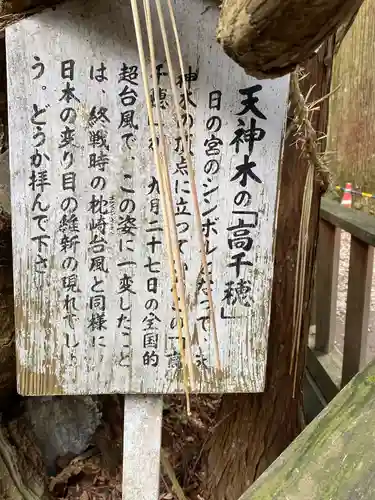 天神木の「高千穂」
日の宮のシンボルとなって、
神木の頂点に立って この「高
千穂 九月二十七日の全国的
超台風で、この姿に一変したこと
は、終戦時の枕崎台風と同様に
日本の変り目の維新の現れでしょ
う。どうか拝んで下さい。